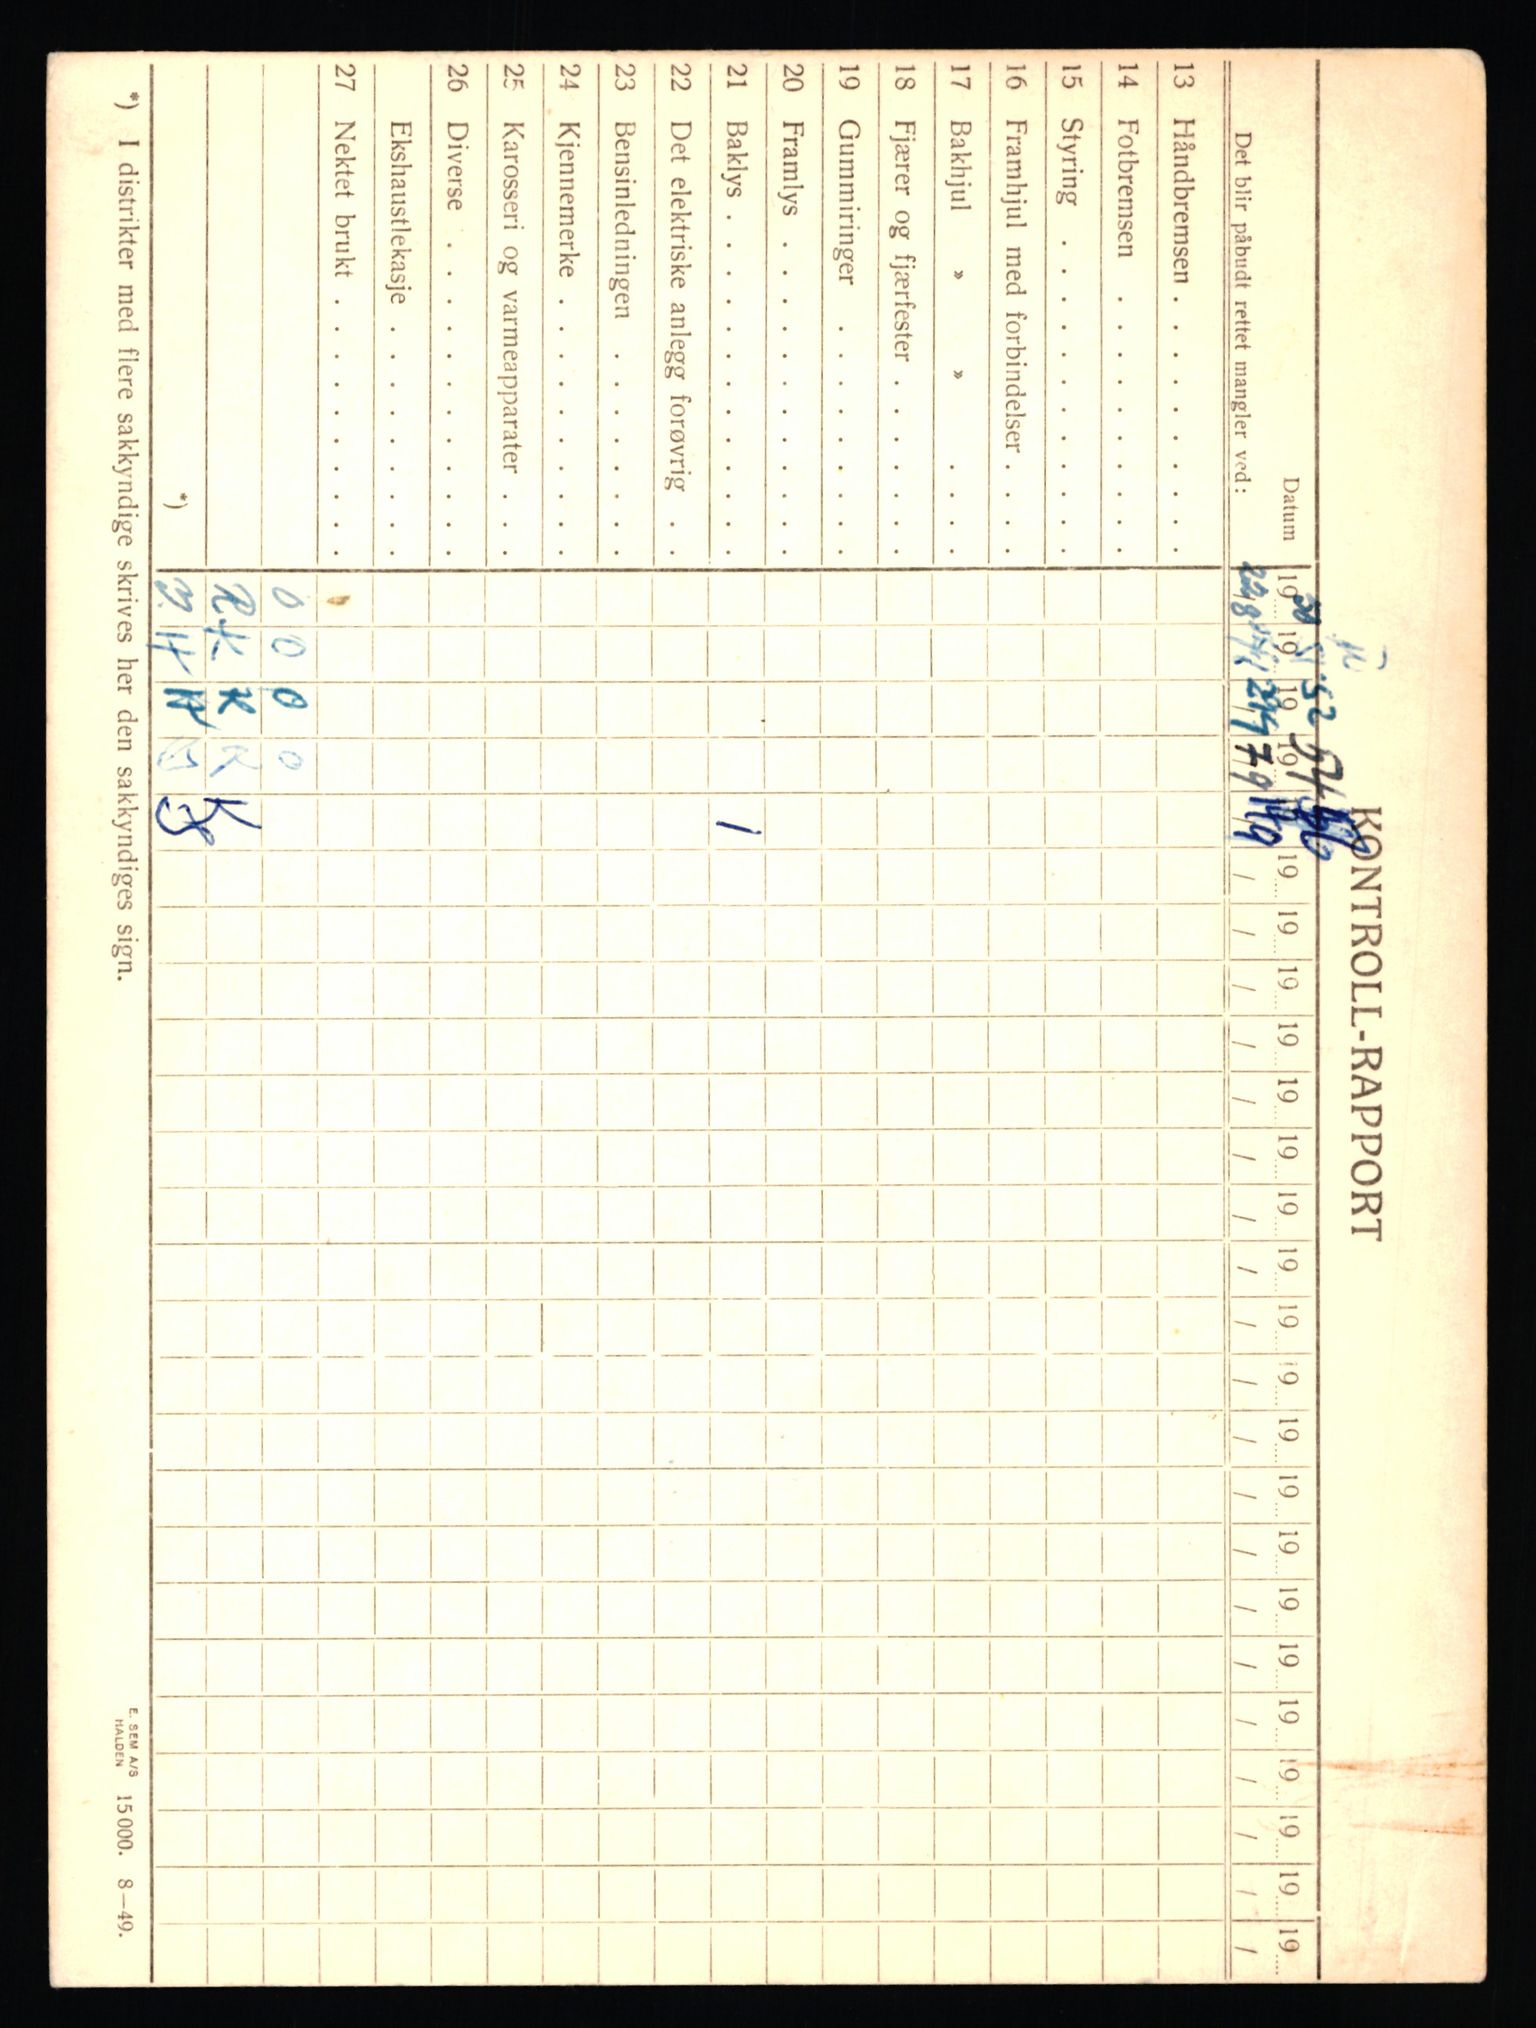 KONTROLL-RAPPORT
Datum 19 50 19 51 19 52 19 54 19 19 19 19 19 19 19 19 19 19 19 19 19 19 19 19 19 19 19 19 19
Det blir påbudt rettet mangler ved: / / / / / / / / / / / / / / / / / / / /
13 Håndbremsen . . . . .
14 Fotbremsen . . . . .
15 Styring . . . . . .
16 Framhjul med forbindelser . . .
17 Bakhjul » » . . .
18 Fjærer og fjærfester . . . .
19 Gummiringer . . . . .
20 Framlys . . . . . .
21 Baklys . . . . . . . /
22 Det elektriske anlegg forøvrig . .
23 Bensinledningen . . . .
24 Kjennemerke . . . . .
25 Karosseri og varmeapparater . .
26 Diverse . . . . . .
Ekshaustlekasje . . . . .
27 Nektet brukt . . . . .
0 0 0 0
R K K R K
*)
*) I distrikter med flere sakkyndige skrives her den sakkyndiges sign.
E. SEM A/S
HALDEN 15 000. 8—49.